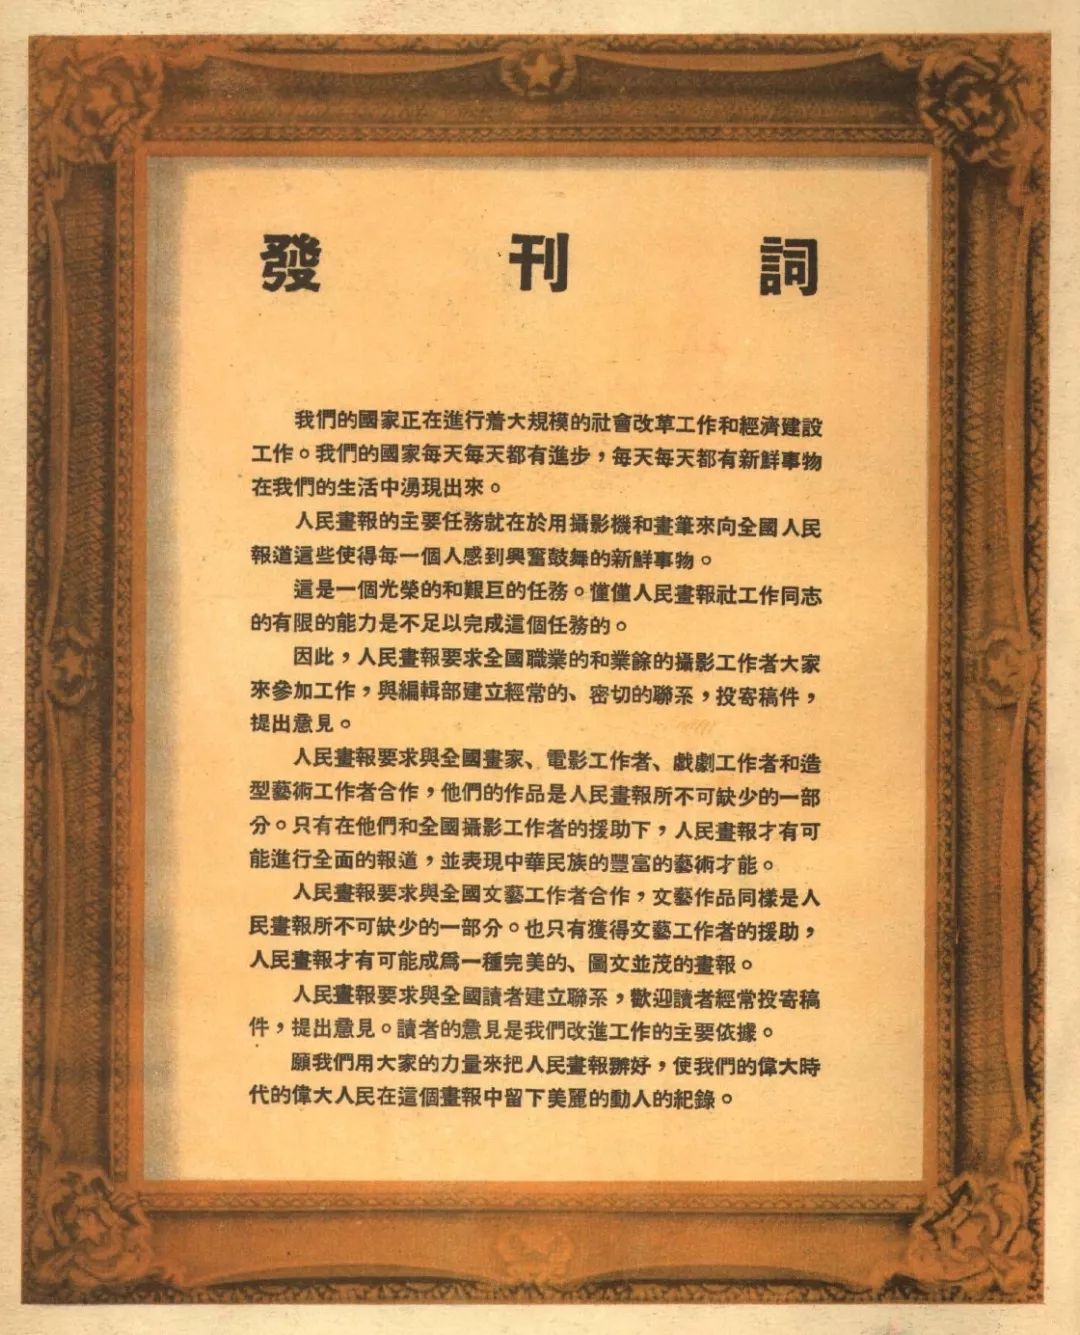 發刊詞
我們的國家正在進行着大規模的社會改革工作和經濟建設
工作。我們的國家每天每天都有進步，每天每天都有新鮮事物
在我們的生活中湧現出來。
人民畫報的主要任務就在於用攝影機和畫筆來向全國人民
報道這些使得每一個人感到興奮鼓舞的新鮮事物。
這是一個光榮的和艱巨的任務。僅僅人民畫報社工作同志
的有限的能力是不足以完成這個任務的。
因此，人民畫報要求全國職業的和業餘的攝影工作者大家
來參加工作，與編輯部建立經常的、密切的聯系，投寄稿件，
提出意見。
人民畫報要求與全國畫家、電影工作者、戲劇工作者和造
型藝術工作者合作，他們的作品是人民畫報所不可缺少的一部
分。只有在他們和全國攝影工作者的援助下，人民畫報才有可
能進行全面的報道，並表現中華民族的豐富的藝術才能。
人民畫報要求與全國文藝工作者合作，文藝作品同樣是人
民畫報所不可缺少的一部分。也只有獲得文藝工作者的援助，
人民畫報才有可能成爲一種完美的、圖文並茂的畫報。
人民畫報要求與全國讀者建立聯系，歡迎讀者經常投寄稿
件，提出意見。讀者的意見是我們改進工作的主要依據。
願我們用大家的力量來把人民畫報辦好，使我們的偉大時
代的偉大人民在這個畫報中留下美麗的動人的紀錄。